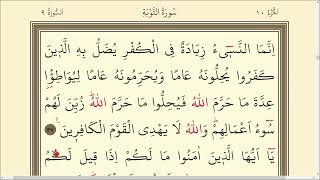 الجزء ١٠ سورة التوبة السورة ٩
اِنَّمَا النَّس۪ٓيءُ زِيَادَةٌ فِي الْكُفْرِ يُضَلُّ بِهِ الَّذ۪ينَ
كَفَرُوا يُحِلُّونَهُ عَامًا وَيُحَرِّمُونَهُ عَامًا لِيُوَاطِؤُ۫ا
عِدَّةَ مَا حَرَّمَ اللّٰهُ فَيُحِلُّوا مَا حَرَّمَ اللّٰهُ زُيِّنَ لَهُمْ
سُٓوءُ اَعْمَالِهِمْ وَاللّٰهُ لَا يَهْدِي الْقَوْمَ الْكَافِر۪ينَ ٣٧
يَٓا اَيُّهَا الَّذ۪ينَ اٰمَنُوا مَا لَكُمْ اِذَا ق۪يلَ لَكُمُ